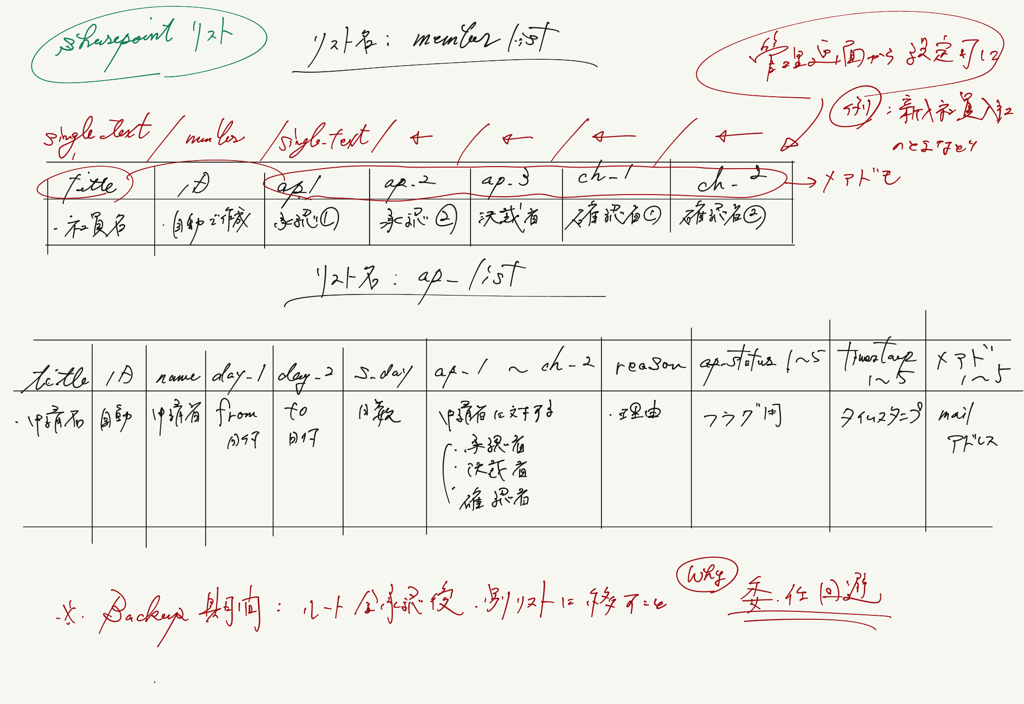 sharepoint リスト
リスト名: member list
管理画面から設定可に
例: 新入社員入社
のときなど
single_text / number / single_text / ← / ← / ← / ←
title ID ap_1 ap_2 ap_3 ch_1 ch_2 → メアドも
・社員名 ・自動で作成 承認① 承認② 決裁者 確認者① 確認者②
リスト名: ap_list
title ID name day_1 day_2 s_day ap_1 ~ ch_2 reason ap_status 1~5 timestamp 1~5 メアド 1~5
・申請名 自動 申請者 from 日付 to 日付 日数 申請者に対する ・理由 フラグ用 タイムスタンプ mail アドレス
・承認者
・決裁者
確認者
※. Backup 期間: ルート全承認後.別リストに移すこと Why 委任回避